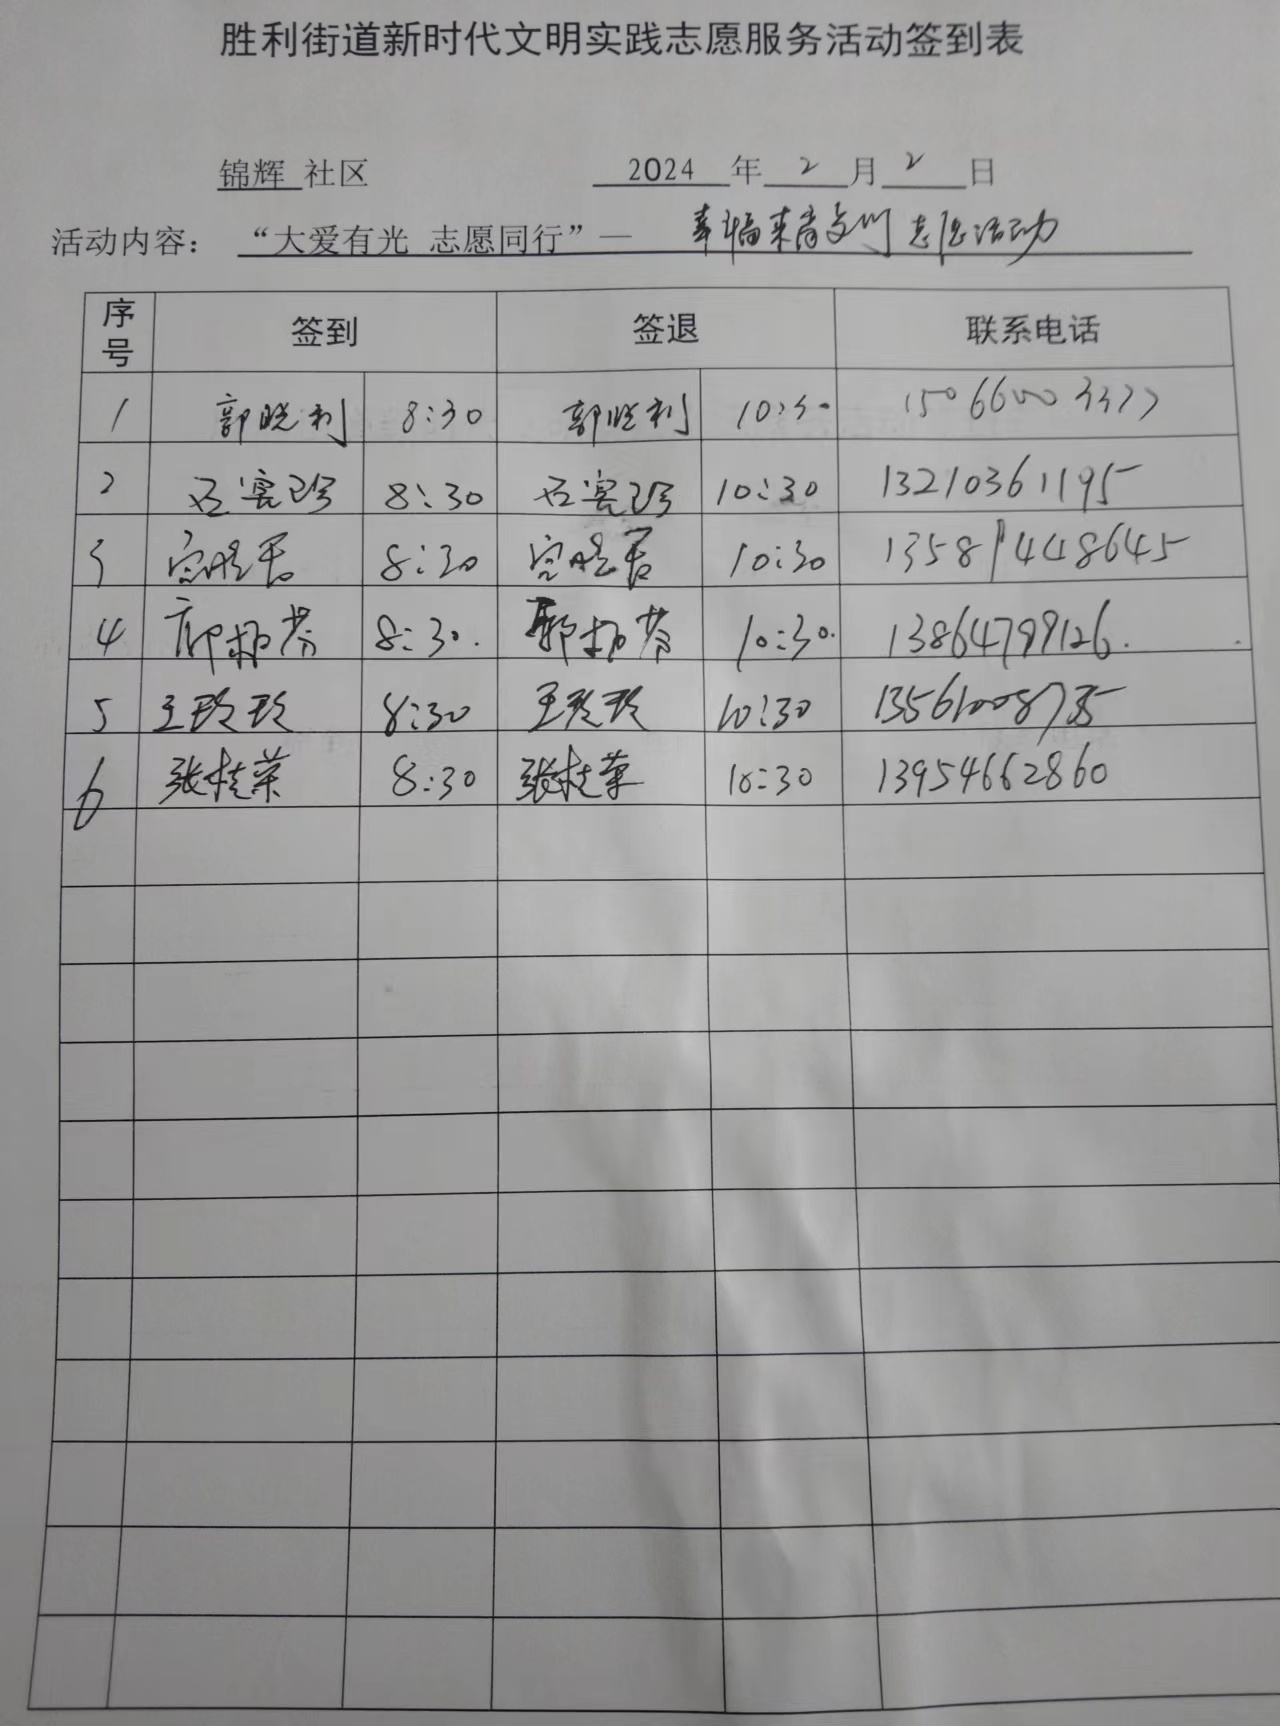 胜利街道新时代文明实践志愿服务活动签到表
锦辉 社区 2024 年 2 月 2 日
活动内容： “大爱有光 志愿同行”— 幸福来敲门 志愿活动
序号 签到 签退 联系电话
1 郭晓利 8:30 郭晓利 10:30 15066003377
2 8:30 10:30 13210361195
3 宫晓君 8:30 宫晓君 10:30 13581448645
4 8:30. 10:30. 13864799126.
5 王玲玲 8:30 王玲玲 10:30 13561008735
6 张桂荣 8:30 张桂荣 10:30 13954662860